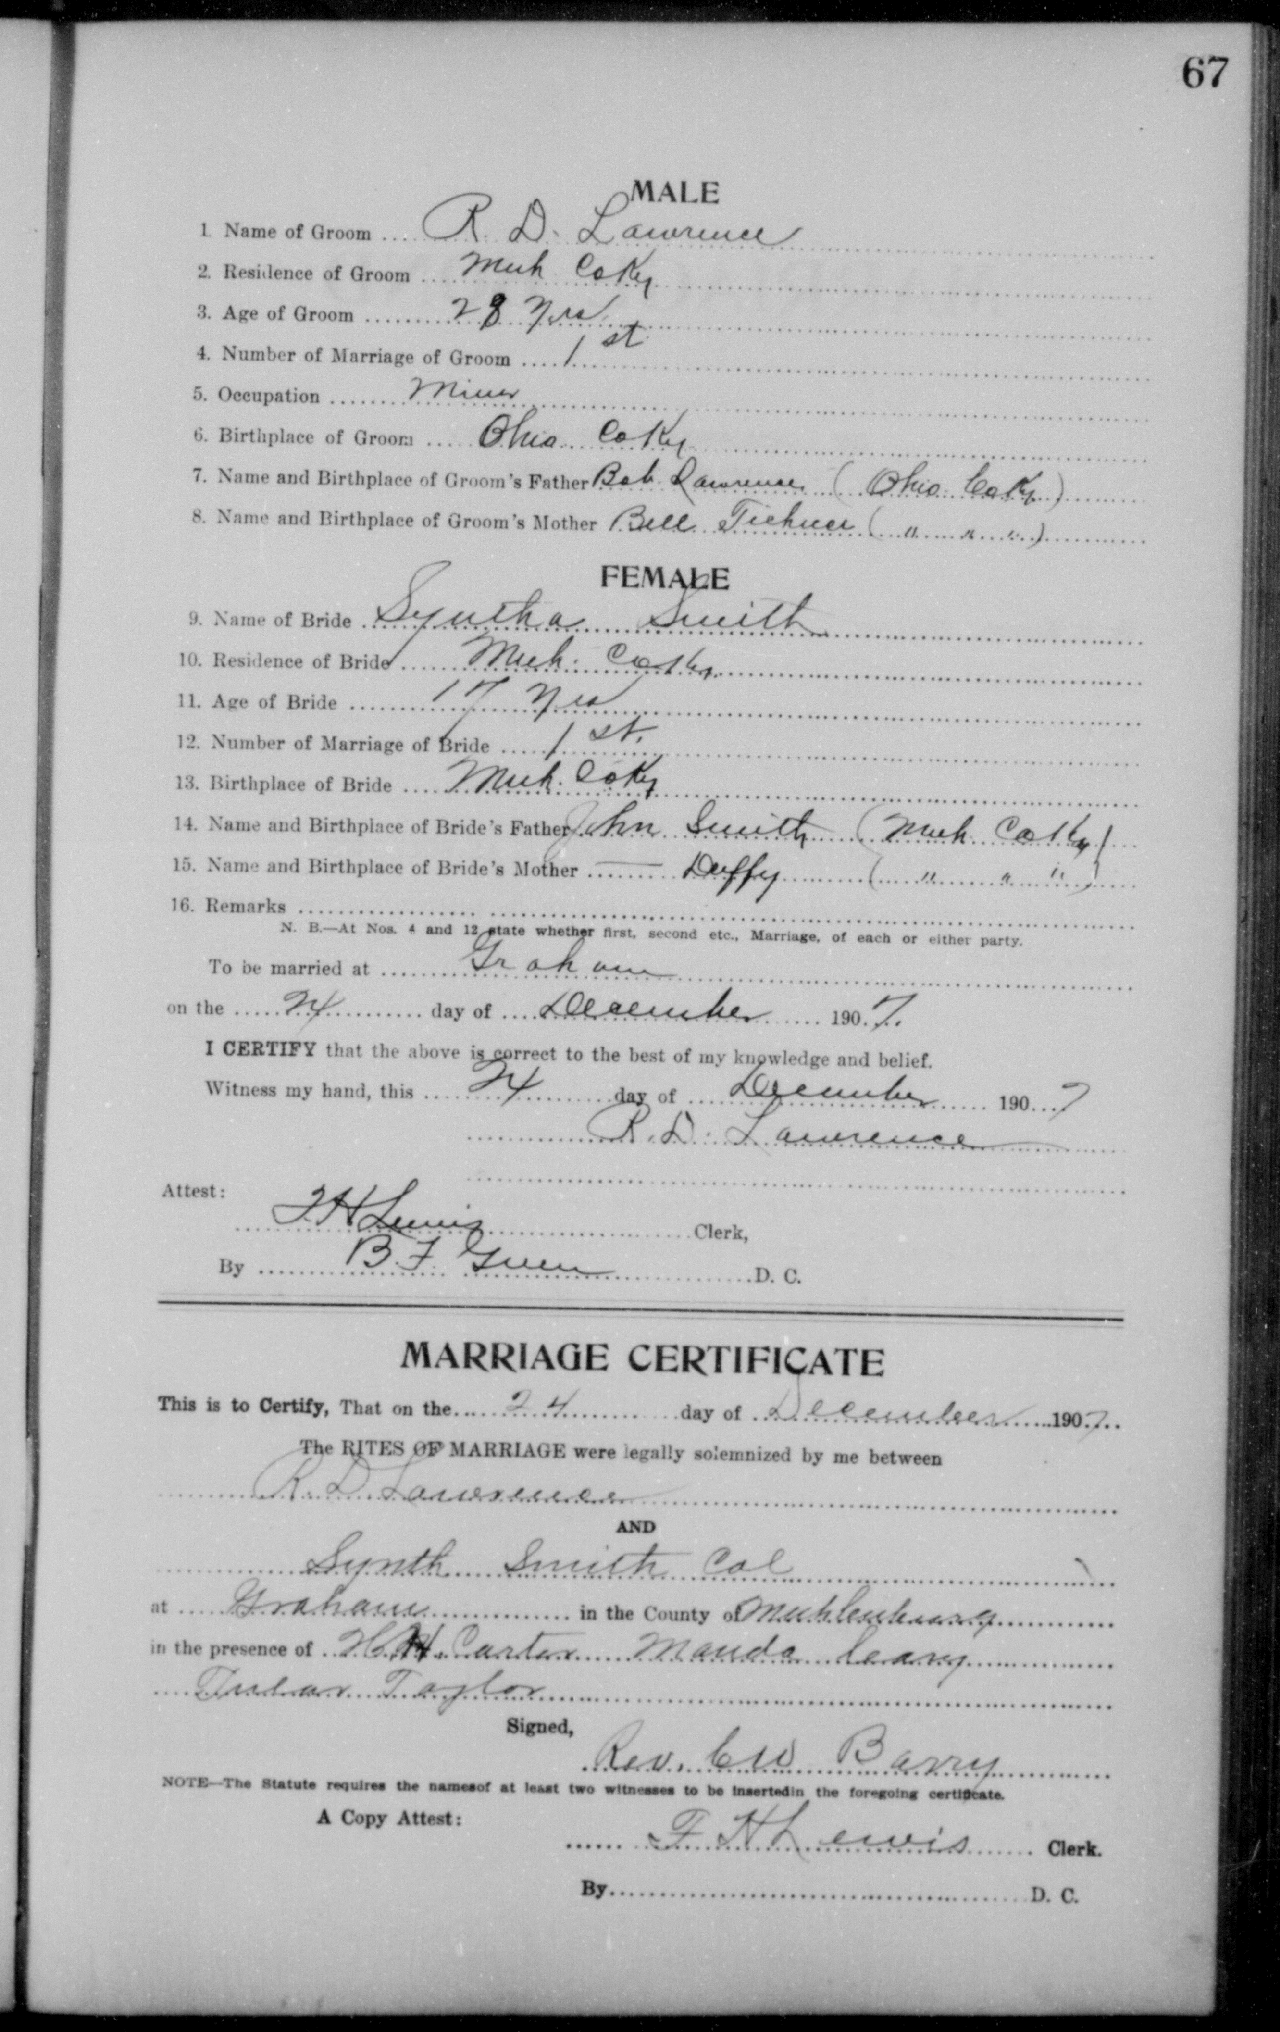 67
MALE
1. Name of Groom .... R. D. Lawrence
2. Residence of Groom .... Muh Co Ky
3. Age of Groom .... 28 Yrs
4. Number of Marriage of Groom .... 1st
5. Occupation .... Miner
6. Birthplace of Groom .... Ohio Co Ky
7. Name and Birthplace of Groom's Father Bob Lawrence (Ohio Co Ky)
8. Name and Birthplace of Groom's Mother Bell (" " ")
FEMALE
9. Name of Bride .... Syntha Smith
10. Residence of Bride .... Muh. Co Ky.
11. Age of Bride .... 17 Yrs
12. Number of Marriage of Bride .... 1st.
13. Birthplace of Bride .... Muh. Co Ky
14. Name and Birthplace of Bride's Father John Smith (Muh Co Ky)
15. Name and Birthplace of Bride's Mother .... — Duffy (" " ")
16. Remarks ....
N. B.—At Nos. 4 and 12 state whether first, second etc., Marriage, of each or either party.
To be married at .... Graham
on the .... 24 .... day of .... December .... 1907.
I CERTIFY that the above is correct to the best of my knowledge and belief.
Witness my hand, this .... 24 .... day of .... December .... 1907
R. D. Lawrence
Attest:
F H Lewis .... Clerk,
By .... B. F. Green .... D. C.
MARRIAGE CERTIFICATE
This is to Certify, That on the .... 24 .... day of .... December .... 1907..
The RITES OF MARRIAGE were legally solemnized by me between
R. D. Lawrence
AND
Synth Smith Col
at .... Graham .... in the County of Muhlenburg
in the presence of .. H. H. Carter Manda
Taylor
Signed,
Rev. C W Barry
NOTE—The Statute requires the namesof at least two witnesses to be insertedin the foregoing certificate.
A Copy Attest:
F H Lewis .... Clerk.
By .... D. C.